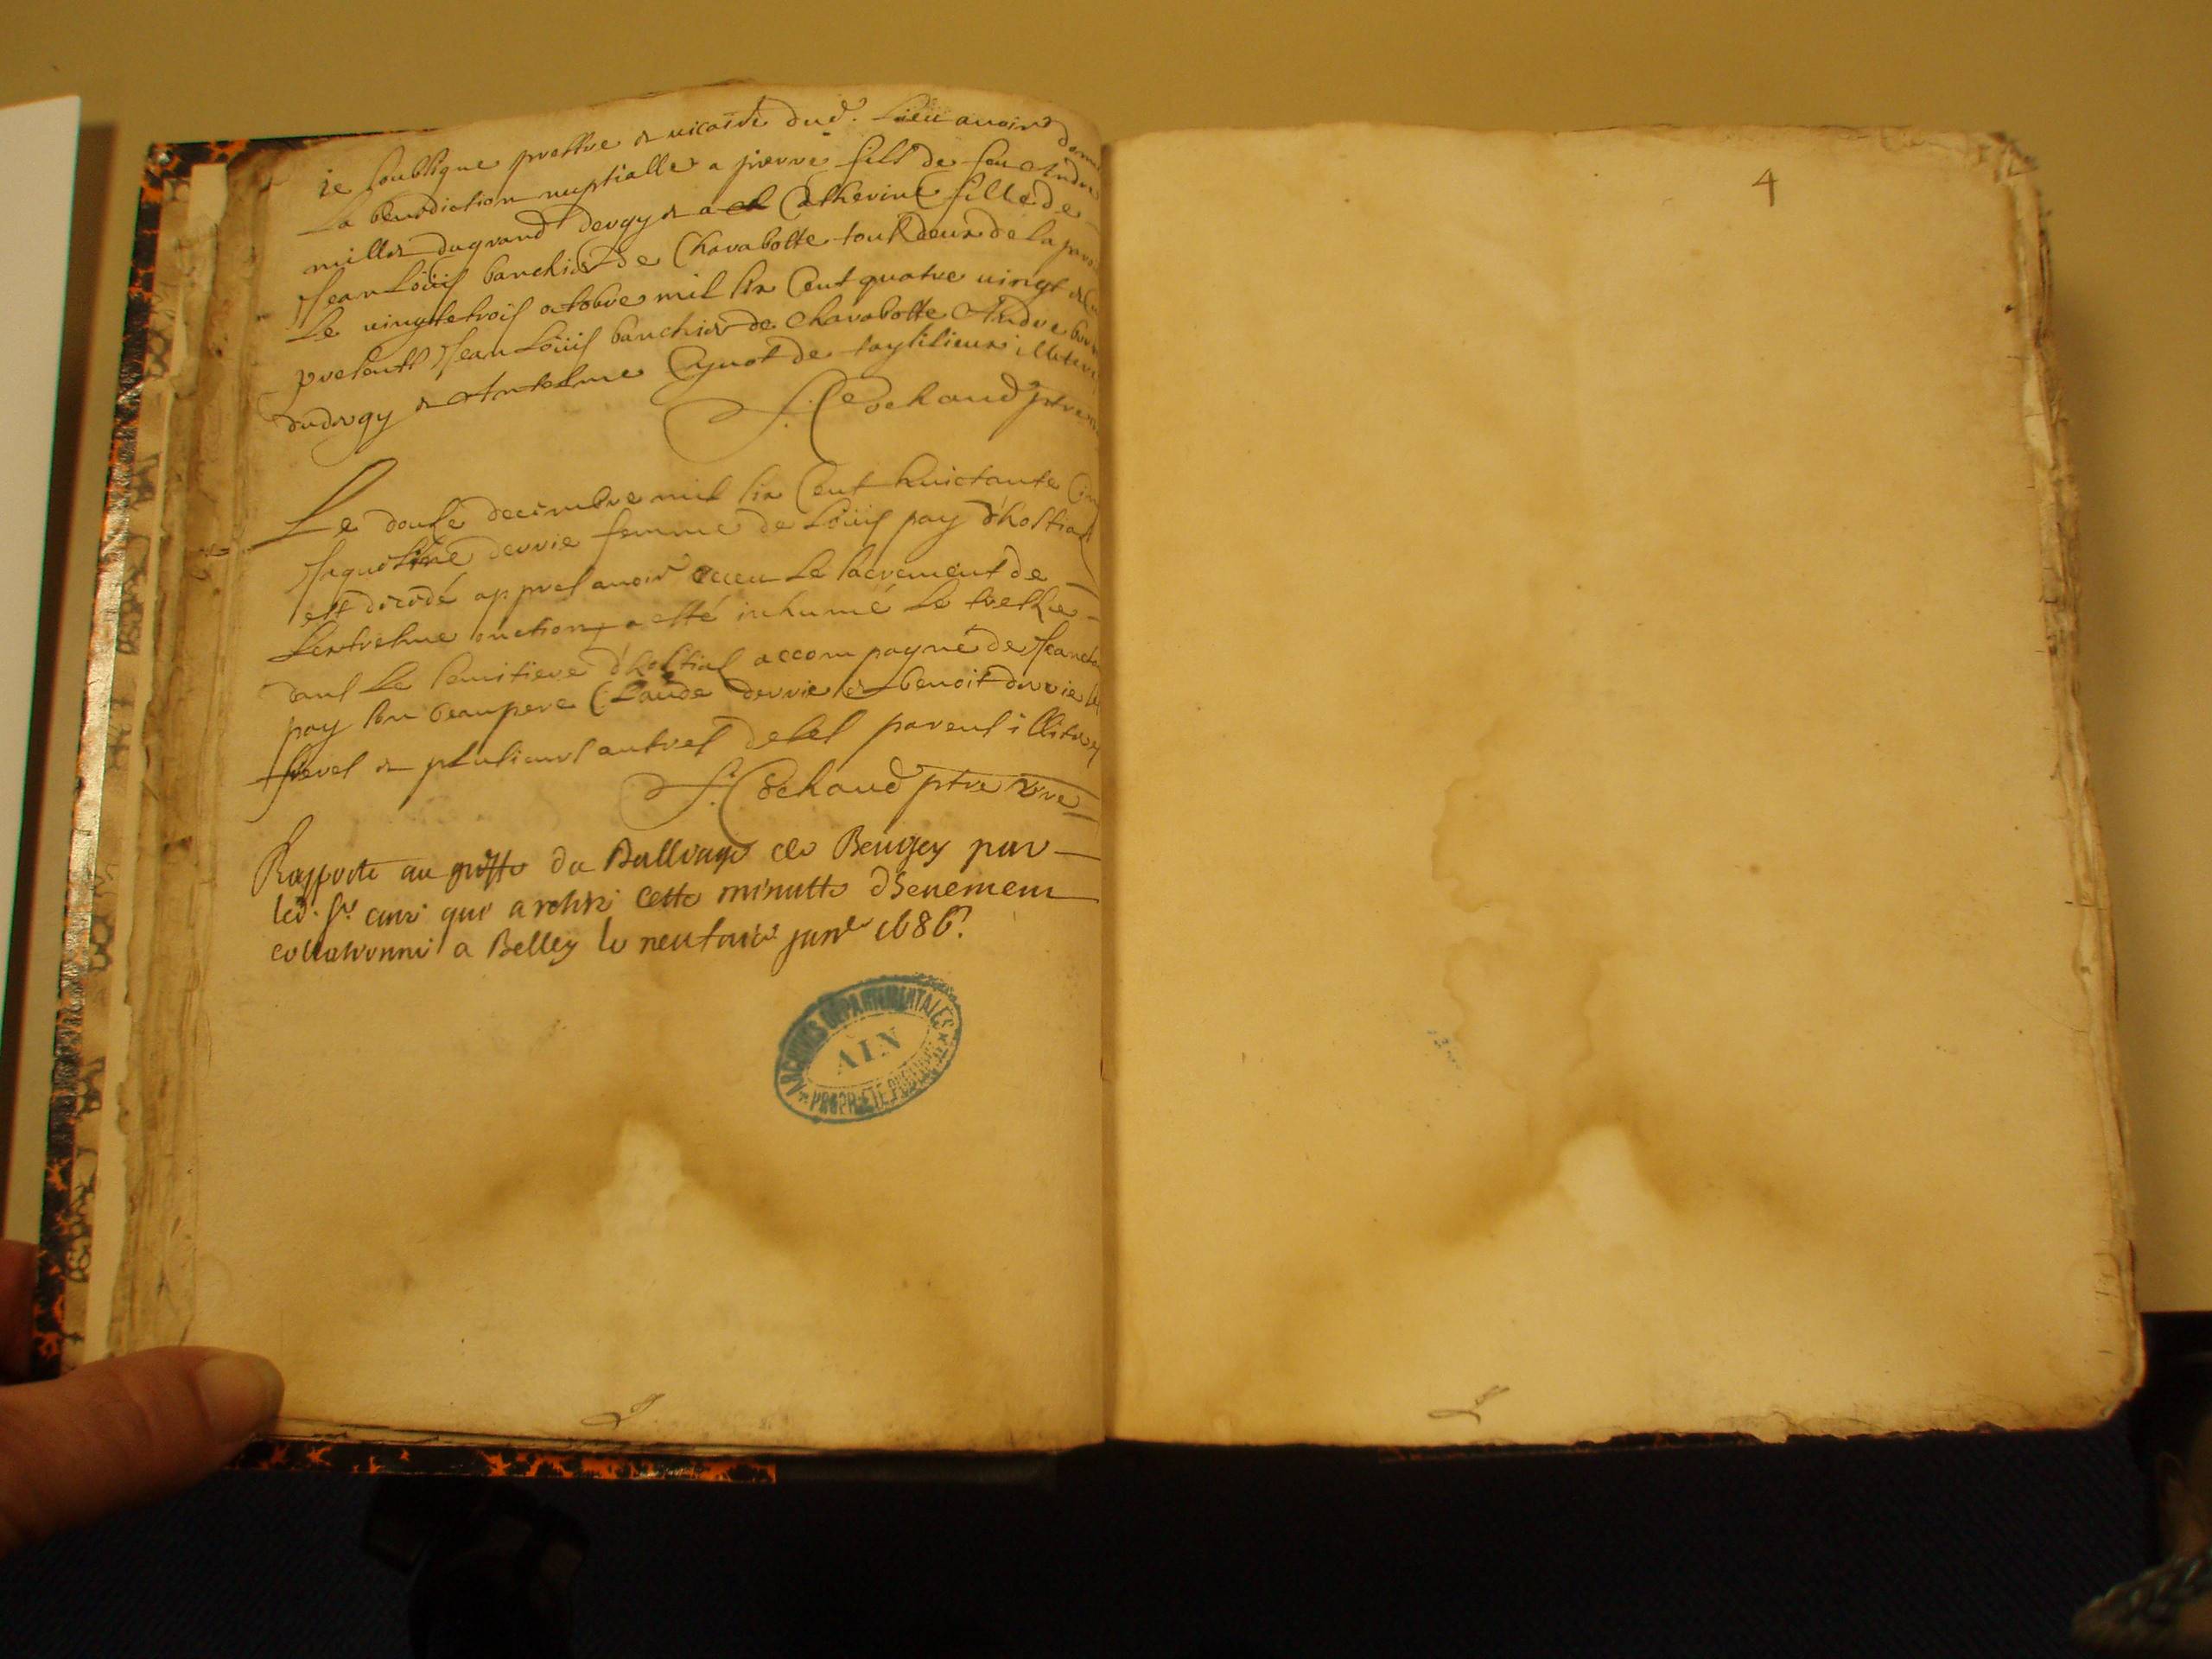 ie soubsigne prestre & vicaire dud. lieu auoir donn
La benediction nuptialle a pierre fils de feu Andre
millet du grand dergy & a Catherine fille de
Jean Loüis banchier de Charabotte tout deux de la
Le vingtetrois octobre mil six Cent quatre vingt &
presents Jean Loüis banchier de Charabotte Andre
dudergy & Antelme de illitere
f. Cochaud ptre
Le douse decembre mil six Cent huictante
dervie femme de Loüis pay d'hostias
est decedé appres auoir receu Le sacrement de
Lextresme onction, a esté inhumé Le tresse
dans Le semitiere d'hostias accompagné de Jean
pay son beaupere Claude dervie & benoit dervie ses
freres & plusieurs autres de ses parens illiteres
f. Cochaud ptre
Rapporté au greffe du Balliage de Beugey par
led. sr. curé qui a retiré cette minutte
collationné a Belley le janer 1686.
ARCHIVES DÉPARTEMENTALES
AIN
PROPRIÉTÉ PUBLIQUE
4